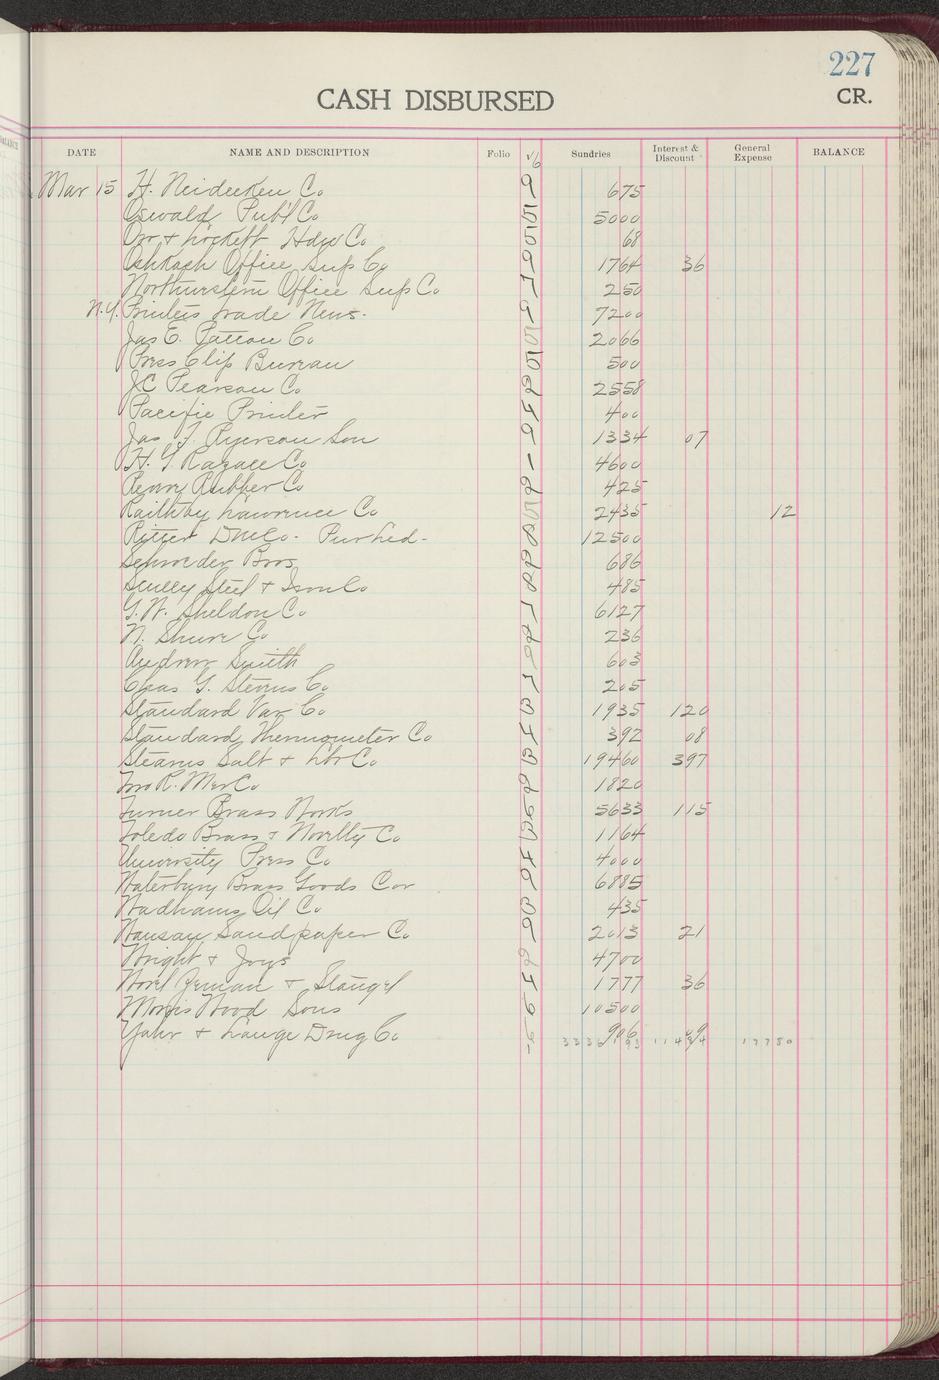 227
CASH DISBURSED
CR.
DATE NAME AND DESCRIPTION Folio Sundries Interest & Discount General Expense BALANCE
Mar 15 H. Neidecken Co 675
Oswald Publ Co 5000
Orr & Lockett Hdw Co 68
Oshkosh Office Sup Co 1764 36
Northwestern Office Sup Co 250
N.Y. Printers Trade News. 7200
Jas E. Patton Co 2066
Press Clip Bureau 500
JC Pearson Co 2558
Pacific Printer 400
Jas T. Ryerson Son 1334 07
H. Co 4600
Rubber Co 425
Lawrence Co 2435 12
Ritter 12500
Schroeder Bros 686
Scully Steel & Iron Co 485
G.W. Sheldon Co 6127
N. Shure Co 236
Andrew Smith 603
Chas G. Stevens Co 205
Standard Var Co 1935 120
Standard Thermometer Co 392 08
Stearns Salt & Lbr Co 19460 397
Mer Co 1820
Turner Brass Works 5633 115
Toledo Brass & Novelty Co 1164
University Press Co 4000
Waterbury Brass Goods Cor 6885
Wadhams Oil Co 435
Wausau Sandpaper Co 2013 21
Wright & Joys 4700
& Stangel 1777 36
Morris Wood Sons 10500
Yahr & Lange Drug Co 906 09
17780